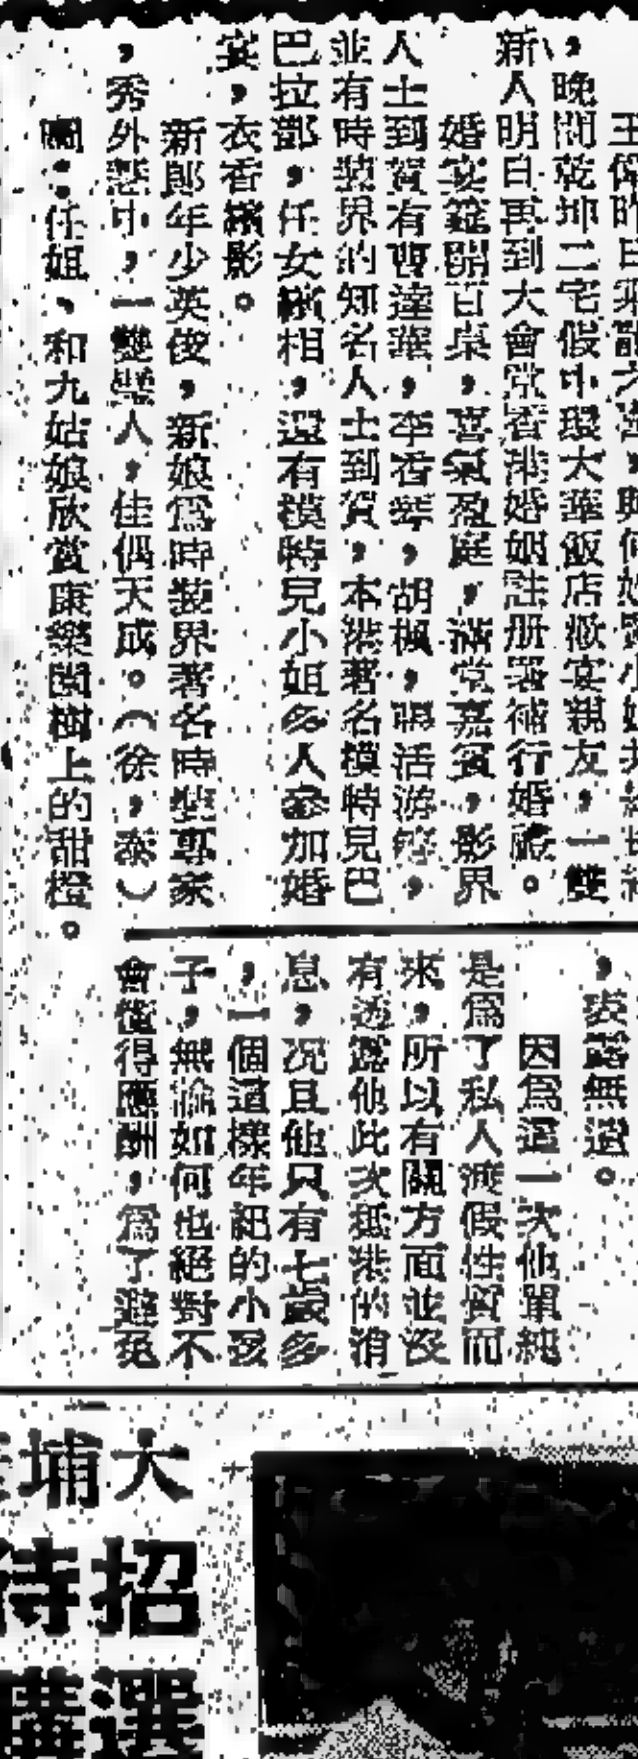 王偉昨日
，晚間乾坤二宅假中環大華飯店歡宴親友，一雙
新人明日再到大會堂香港婚姻註册署補行婚禮。
婚宴筵開百桌，喜氣盈庭，滿堂嘉賓，影界
人士到賀有曹達華，李香琴，胡楓，張活游等，
並有時裝界的知名人士到賀，本港著名模特兒巴
巴拉鄧，任女儐相，還有模特兒小姐多人參加婚
宴，衣香繽影。
新郎年少英俊，新娘爲時裝界著名時裝專家
，秀外慧中，一雙璧人，佳偶天成。（徐，泰）
圖：任姐、和九姑娘欣賞康樂園樹上的甜橙。
，表露無遺。
因爲這一次他單純
是爲了私人渡假性質而
來，所以有關方面並沒
有透露他此次抵港的消
息，况且他只有七歲多
，一個這樣年紀的小孩
子，無論如何也絕對不
會懂得應酬，爲了避免
大埔
招待
選購